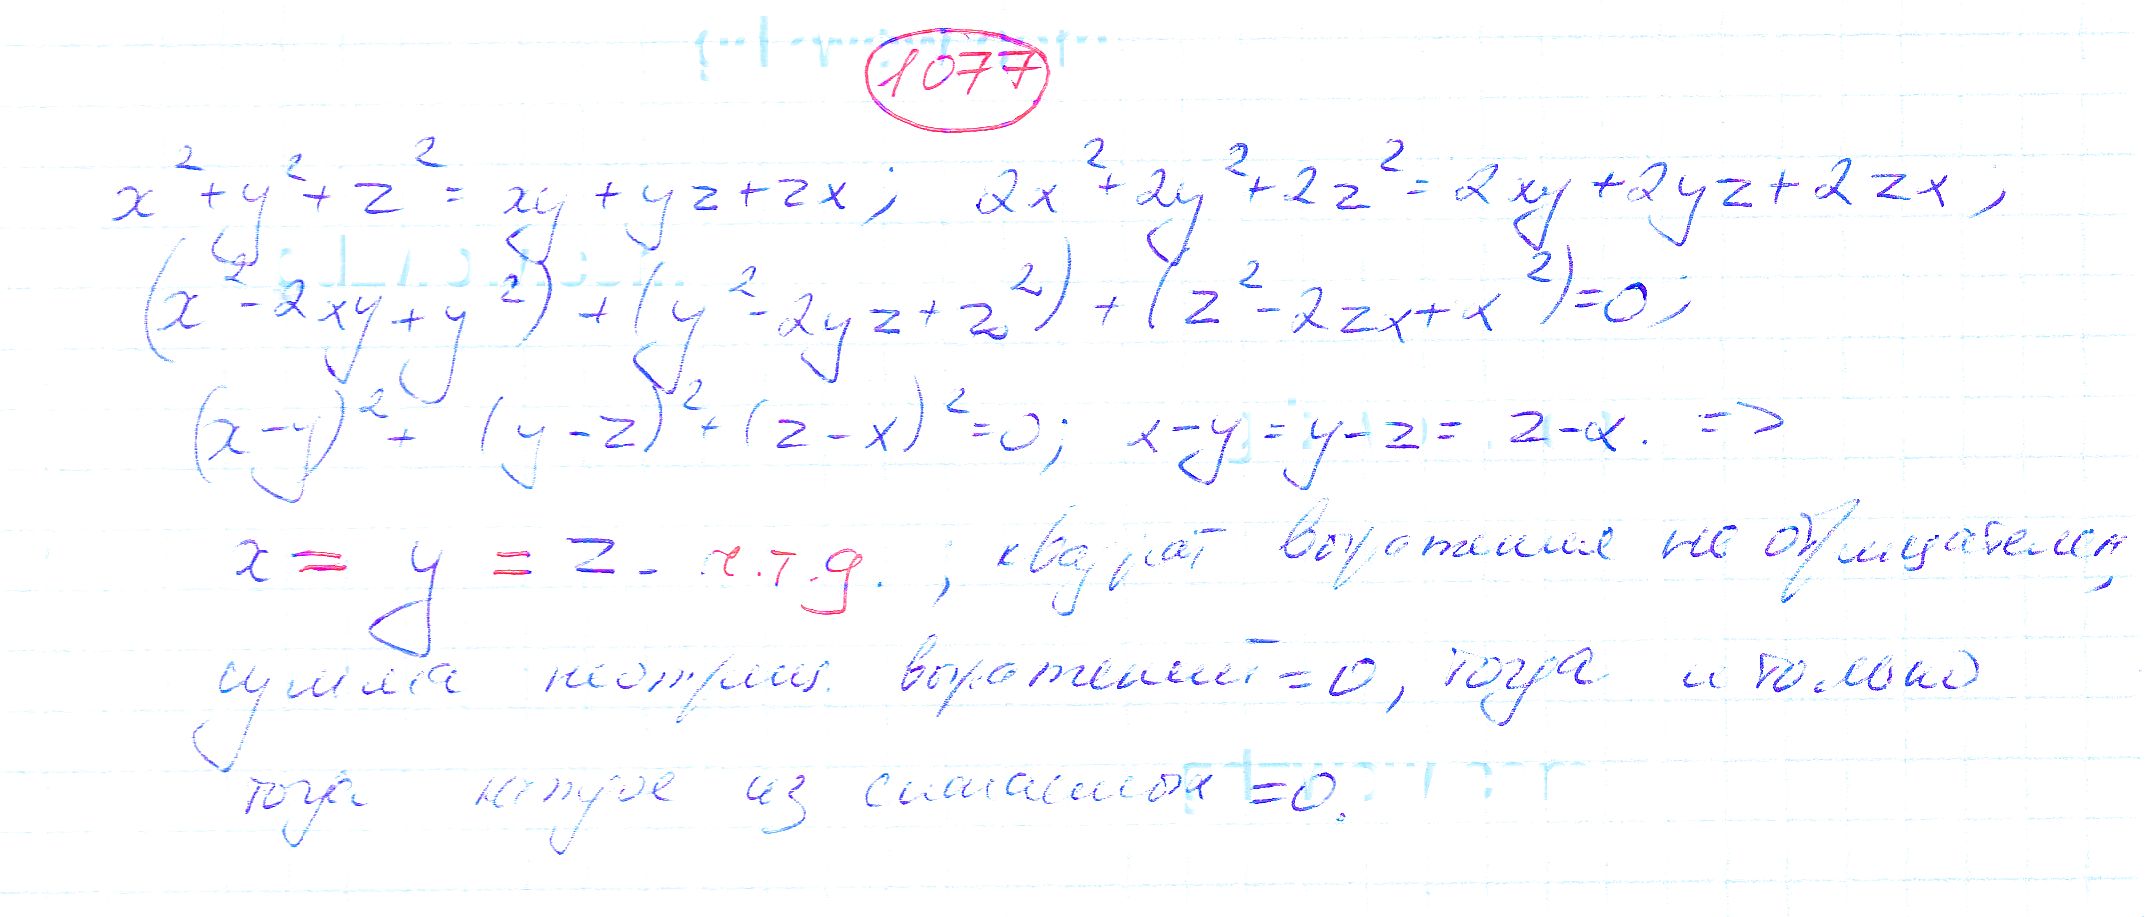 1077
x² + y² + z² = xy + yz + zx; 2x² + 2y² + 2z² = 2xy + 2yz + 2zx;
(x² - 2xy + y²) + (y² - 2yz + z²) + (z² - 2zx + x²) = 0;
(x - y)² + (y - z)² + (z - x)² = 0; x - y = y - z = z - x. =>
x = y = z. ч.т.д. ; квадрат выражения не отрицателен,
сумма неотриц. выражений = 0, тогда и только
тогда каждое из слагаемых = 0.